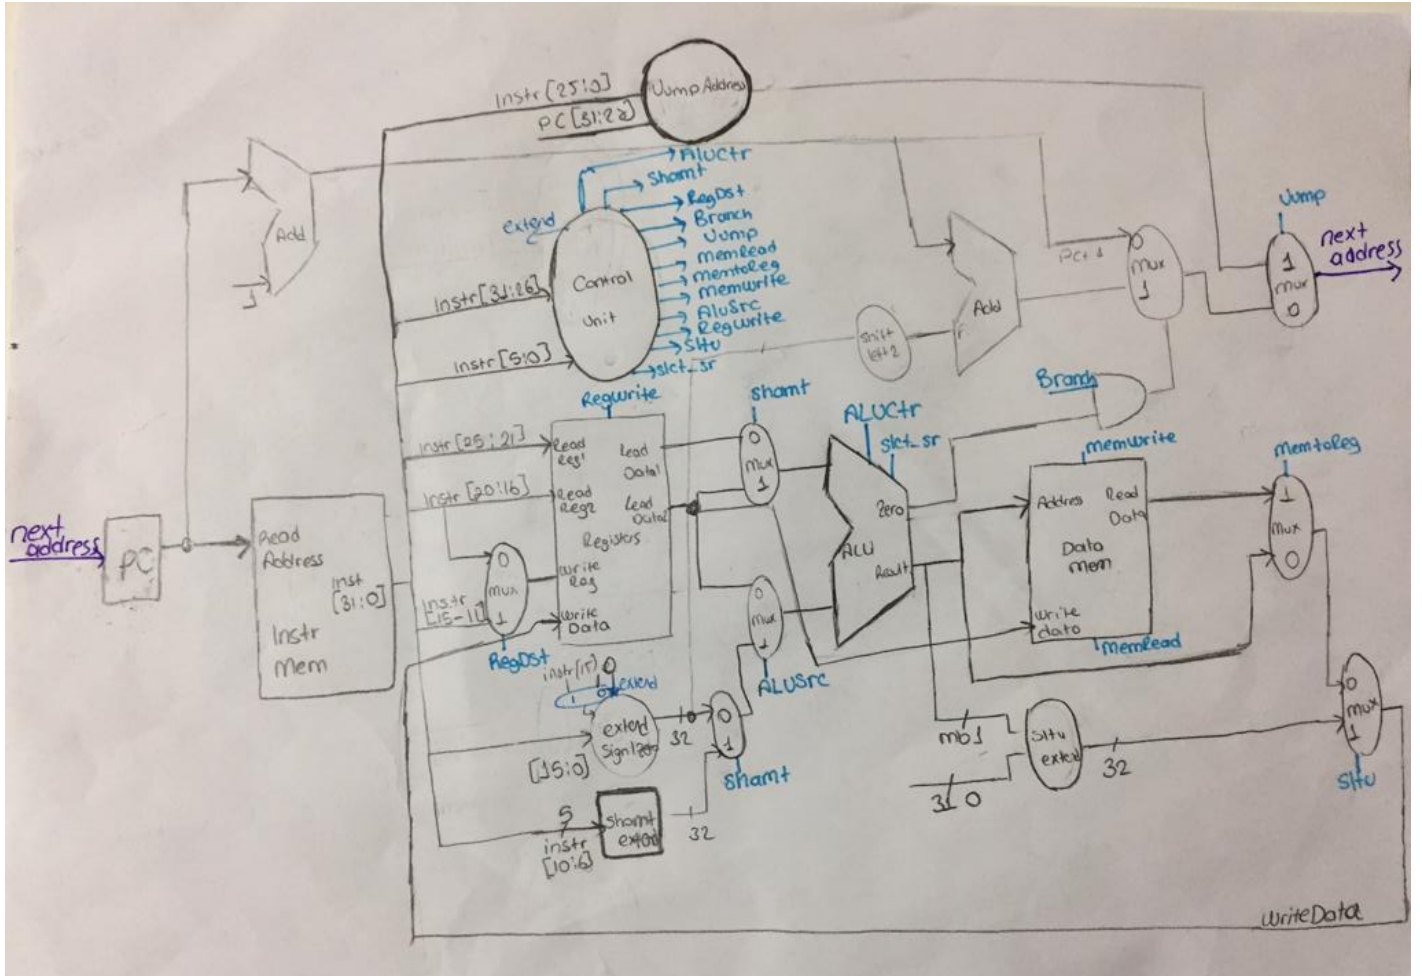 Instr[25:0]
PC[31:28]
Jump Address
Add
1
extend
ALUCtr
Shamt
RegDst
Branch
Jump
memRead
memtoReg
memwrite
ALUSrc
RegWrite
Sltu
slct_sr
Instr[31:26]
Control
Unit
Instr[5:0]
shift
left2
Add
PC+1
0
mux
1
Jump
1
mux
0
next
address
Branch
RegWrite
Instr[25:21]
Read
Reg1
Instr[20:16]
Read
Reg2
Registers
Write
Reg
Write
Data
0
mux
1
Instr
[15-11]
RegDst
Shamt
0
mux
1
ALUCtr
slct_sr
Zero
ALU
Result
0
mux
1
ALUSrc
memwrite
Address
Read
Data
Data
mem
write
data
memRead
memtoReg
1
mux
0
next
address
PC
Read
Address
Inst
[31:0]
Instr
mem
instr[15]
0
1
0
extend
extend
[15:0]
32
0
1
Shamt
5
instr
[10:6]
Shamt
extend
32
mb1
31 0
Sltu
extend
32
0
mux
1
Sltu
writeData